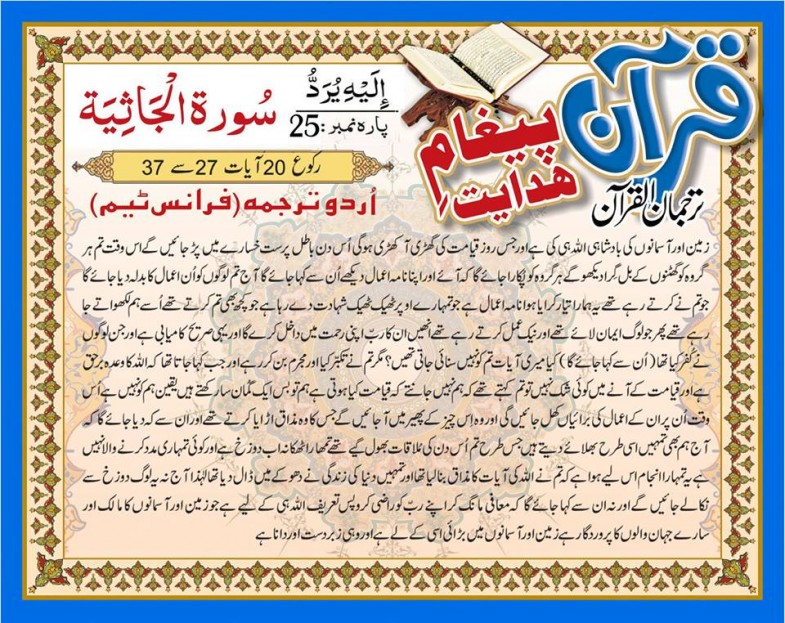 قرآن
پیغامِ ھدایت
ترجمان القرآن
إِلَيْهِ يُرَدُّ
پارہ نمبر:25
سُورة الْجَاثِيَة
رکوع 20 آیات 27 سے 37
اُردو ترجمہ (فرانس ٹیم)
زمین اور آسمانوں کی بادشاہی اللہ ہی کی ہے اور جس روز قیامت کی گھڑی آ کھڑی ہوگی اُس دن باطل پرست خسارے میں پڑ جائیں گے اس وقت تم ہر
گروہ کو گھٹنوں کے بل گرا دیکھو گے ہر گروہ کو پُکارا جائے گا کہ آئے اور اپنا نامہ اعمال دیکھے اُن سے کہا جائے گا آج تم لوگوں کو اُن اعمال کا بدلہ دیا جائے گا
جو تم نے کرتے رہے تھے یہ ہمارا تیار کرایا ہوا نامہ اعمال ہے جو تمہارے اوپر ٹھیک ٹھیک شہادت دے رہا ہے جو کچھ بھی تم کرتے تھے اُسے ہم لکھواتے جا
رہے تھے پھر جو لوگ ایمان لائے تھے اور نیک عمل کرتے رہے تھے انھیں ان کا ربّ اپنی رحمت میں داخل کرے گا اور یہی صریح کامیابی ہے اور جن لوگوں
نے کفر کیا تھا ( اُن سے کہا جائے گا ) کیا میری آیات تم کو نہیں سنائی جاتی تھیں؟ مگر تم نے تکبّر کیا اور مجرم بن کر رہے اور جب کہا جاتا تھا کہ اللہ کا وعدہ برحق
ہے اور قیامت کے آنے میں کوئی شک نہیں تو تم کہتے تھے کہ ہم نہیں جانتے کہ قیامت کیا ہوتی ہے ہم تو بس ایک گمان سا رکھتے ہیں یقین ہم کو نہیں ہے اُس
وقت اُن پر ان کے اعمال کی برائیاں کھل جائیں گی اور وہ اِس چیز کے پھیر میں آ جائیں گے جس کا وہ مذاق اڑایا کرتے تھے اور ان سے کہہ دیا جائے گا کہ
آج ہم بھی تمہیں اسی طرح بھلائے دیتے ہیں جس طرح تم اُس دن کی ملاقات بھول گئے تھے تمھارا ٹھکانہ اب دوزخ ہے اور کوئی تمہاری مدد کرنے والا نہیں
ہے یہ تمہارا انجام اس لیے ہوا ہے کہ تم نے اللہ کی آیات کا مذاق بنالیا تھا اور تمہیں دنیا کی زندگی نے دھوکے میں ڈال دیا تھا لہٰذا آج نہ یہ لوگ دوزخ سے
نکالے جائیں گے اور نہ ان سے کہا جائے گا کہ معافی مانگ کر اپنے ربّ کو راضی کرو پس تعریف اللہ ہی کے لیے ہے جو زمین اور آسمانوں کا مالک اور
سارے جہان والوں کا پروردگار ہے زمین اور آسمانوں میں بڑائی اسی کے لے ہے اور وہی زبردست اور دانا ہے